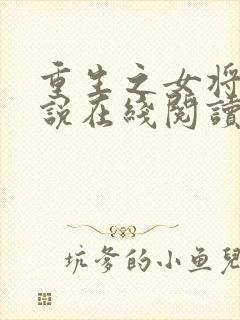 重生之女将
说在綫閱讀
坑爹的小鱼兒